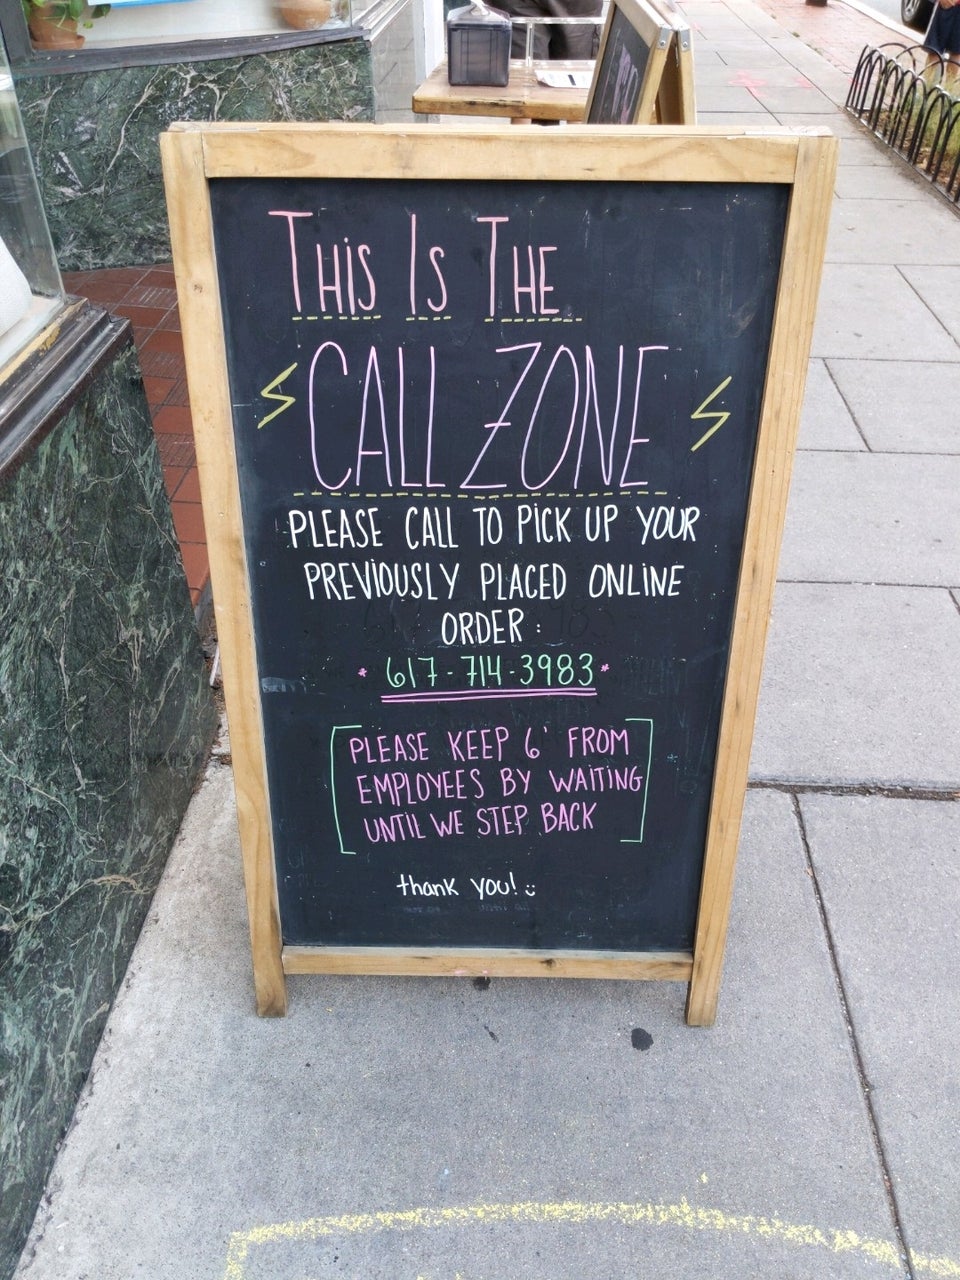 THIS IS THE
CALL ZONE
PLEASE CALL TO PICK UP YOUR
PREVIOUSLY PLACED ONLINE
ORDER:
* 617-714-3983 *
PLEASE KEEP 6' FROM
EMPLOYEES BY WAITING
UNTIL WE STEP BACK
thank you!